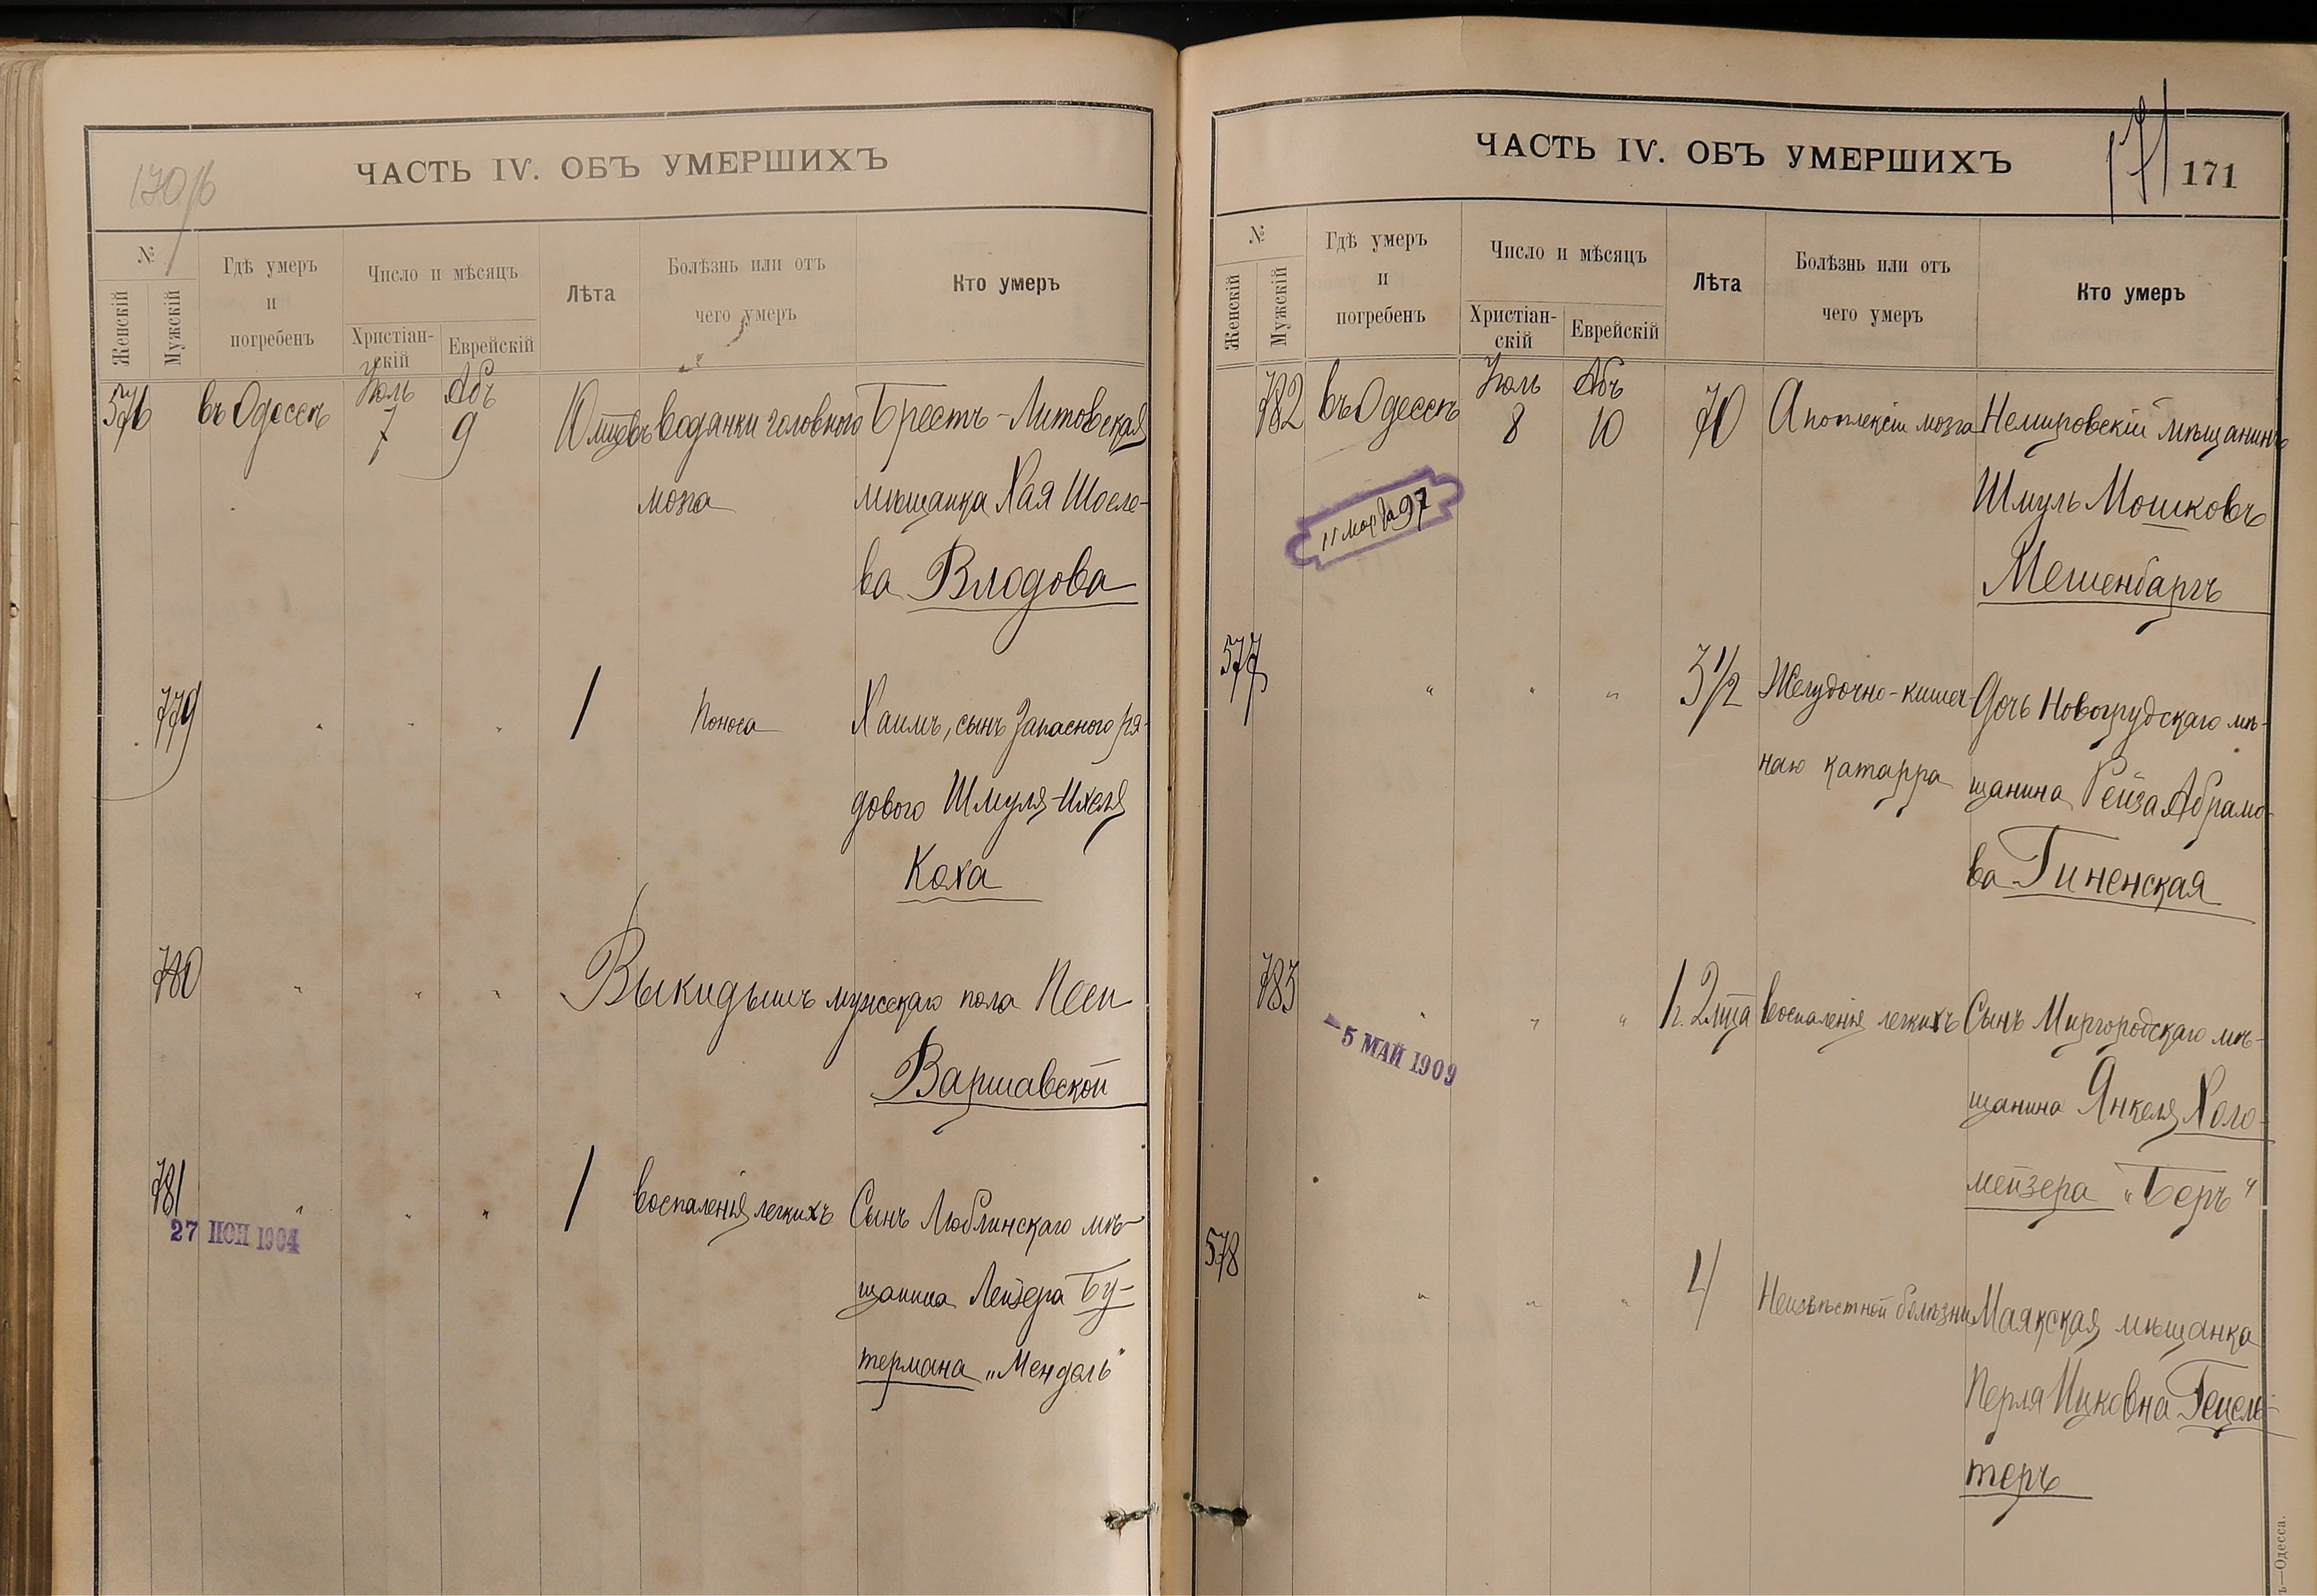 170/б
ЧАСТЬ IV. ОБЪ УМЕРШИХЪ
№
Женскій
Мужскій
Гдѣ умеръ
и
погребенъ
Число и мѣсяцъ
Христіан-
скій
Еврейскій
Лѣта
Болѣзнь или отъ
чего умеръ
Кто умеръ
576 въ Одессѣ Іюль 7 Абъ 9 10 мцевъ водянки головного Брестъ-Литовская
мозга мѣщанка Хая Шоеле-
ва Влодова
779 " " " 1 Поноса Хаимъ, сынъ запасного ря-
дового Шмуля-Ихеля
Коха
780 " " " Выкидышъ мужскаго пола Песи
Варшавской
781 " " " 1 воспаленія легкихъ Сынъ Люблинскаго мѣ-
27 ІЮН 1904
щанина Лейзера Бу-
термана „Мендель"
ЧАСТЬ IV. ОБЪ УМЕРШИХЪ
171
171
№
Женскій
Мужскій
Гдѣ умеръ
и
погребенъ
Число и мѣсяцъ
Христіан-
скій
Еврейскій
Лѣта
Болѣзнь или отъ
чего умеръ
Кто умеръ
782 въ Одессѣ Іюль 8 Абъ 10 70 Апоплексіи мозга Немировскій мѣщанинъ
Шмуль Мошковъ
11 мар 97
Мешенбаргъ
577 " " " 3 1/2 Желудочно-кишеч- Дочь Новогрудскаго мѣ-
наго катарра щанина Рейза Абрамо-
ва Гиненская
783 " " " 1 г. 2 мца воспаленія легкихъ Сынъ Миргородскаго мѣ-
- 5 МАЙ 1909
щанина Янкеля Холо-
мейзера „Беръ"
578 " " " 4 Неизвѣстной болѣзни Маякская мѣщанка
Перля Ицковна Гецель-
теръ
ъ—Одесса.